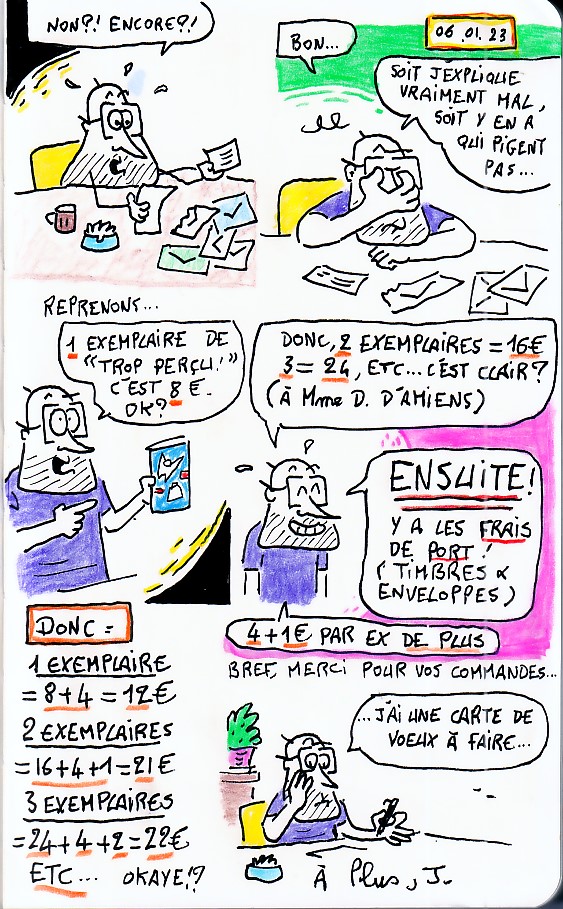 NON?! ENCORE?!
06.01.23
BON...
SOIT J'EXPLIQUE
VRAIMENT MAL,
SOIT Y EN A
QUI PIGENT
PAS...
REPRENONS...
1 EXEMPLAIRE DE
"TROP PERÇU!"
C'EST 8 €.
OK?
DONC, 2 EXEMPLAIRES = 16€
3 = 24, ETC... C'EST CLAIR?
(À Mme D. D'AMIENS)
ENSUITE!
Y A LES FRAIS
DE PORT!
(TIMBRES &
ENVELOPPES)
4+1€ PAR EX DE PLUS
DONC =
1 EXEMPLAIRE
= 8+4 = 12€
2 EXEMPLAIRES
= 16+4+1 = 21€
3 EXEMPLAIRES
= 24+4+2 = 22€
ETC... OKAYE!?
BREF, MERCI POUR VOS COMMANDES...
...J'AI UNE CARTE DE
VOEUX À FAIRE...
À Plus, J.